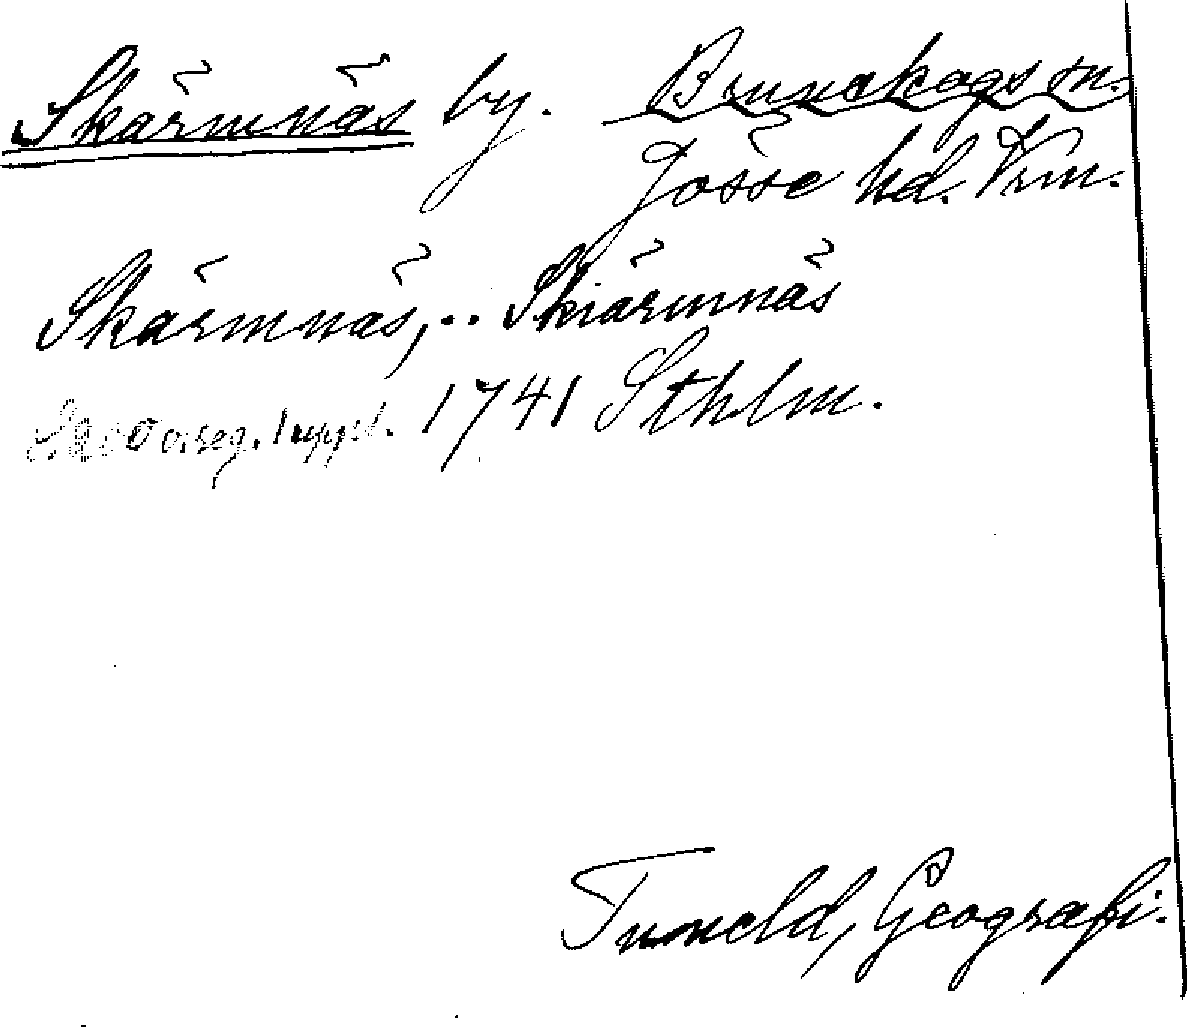 Skärmnäs by. Brunskogs sn.
Jösse hd. Vrm.
Skärmnäs,.. Skiärmnäs
1741 Sthlm.
Tuneld, Geografi.